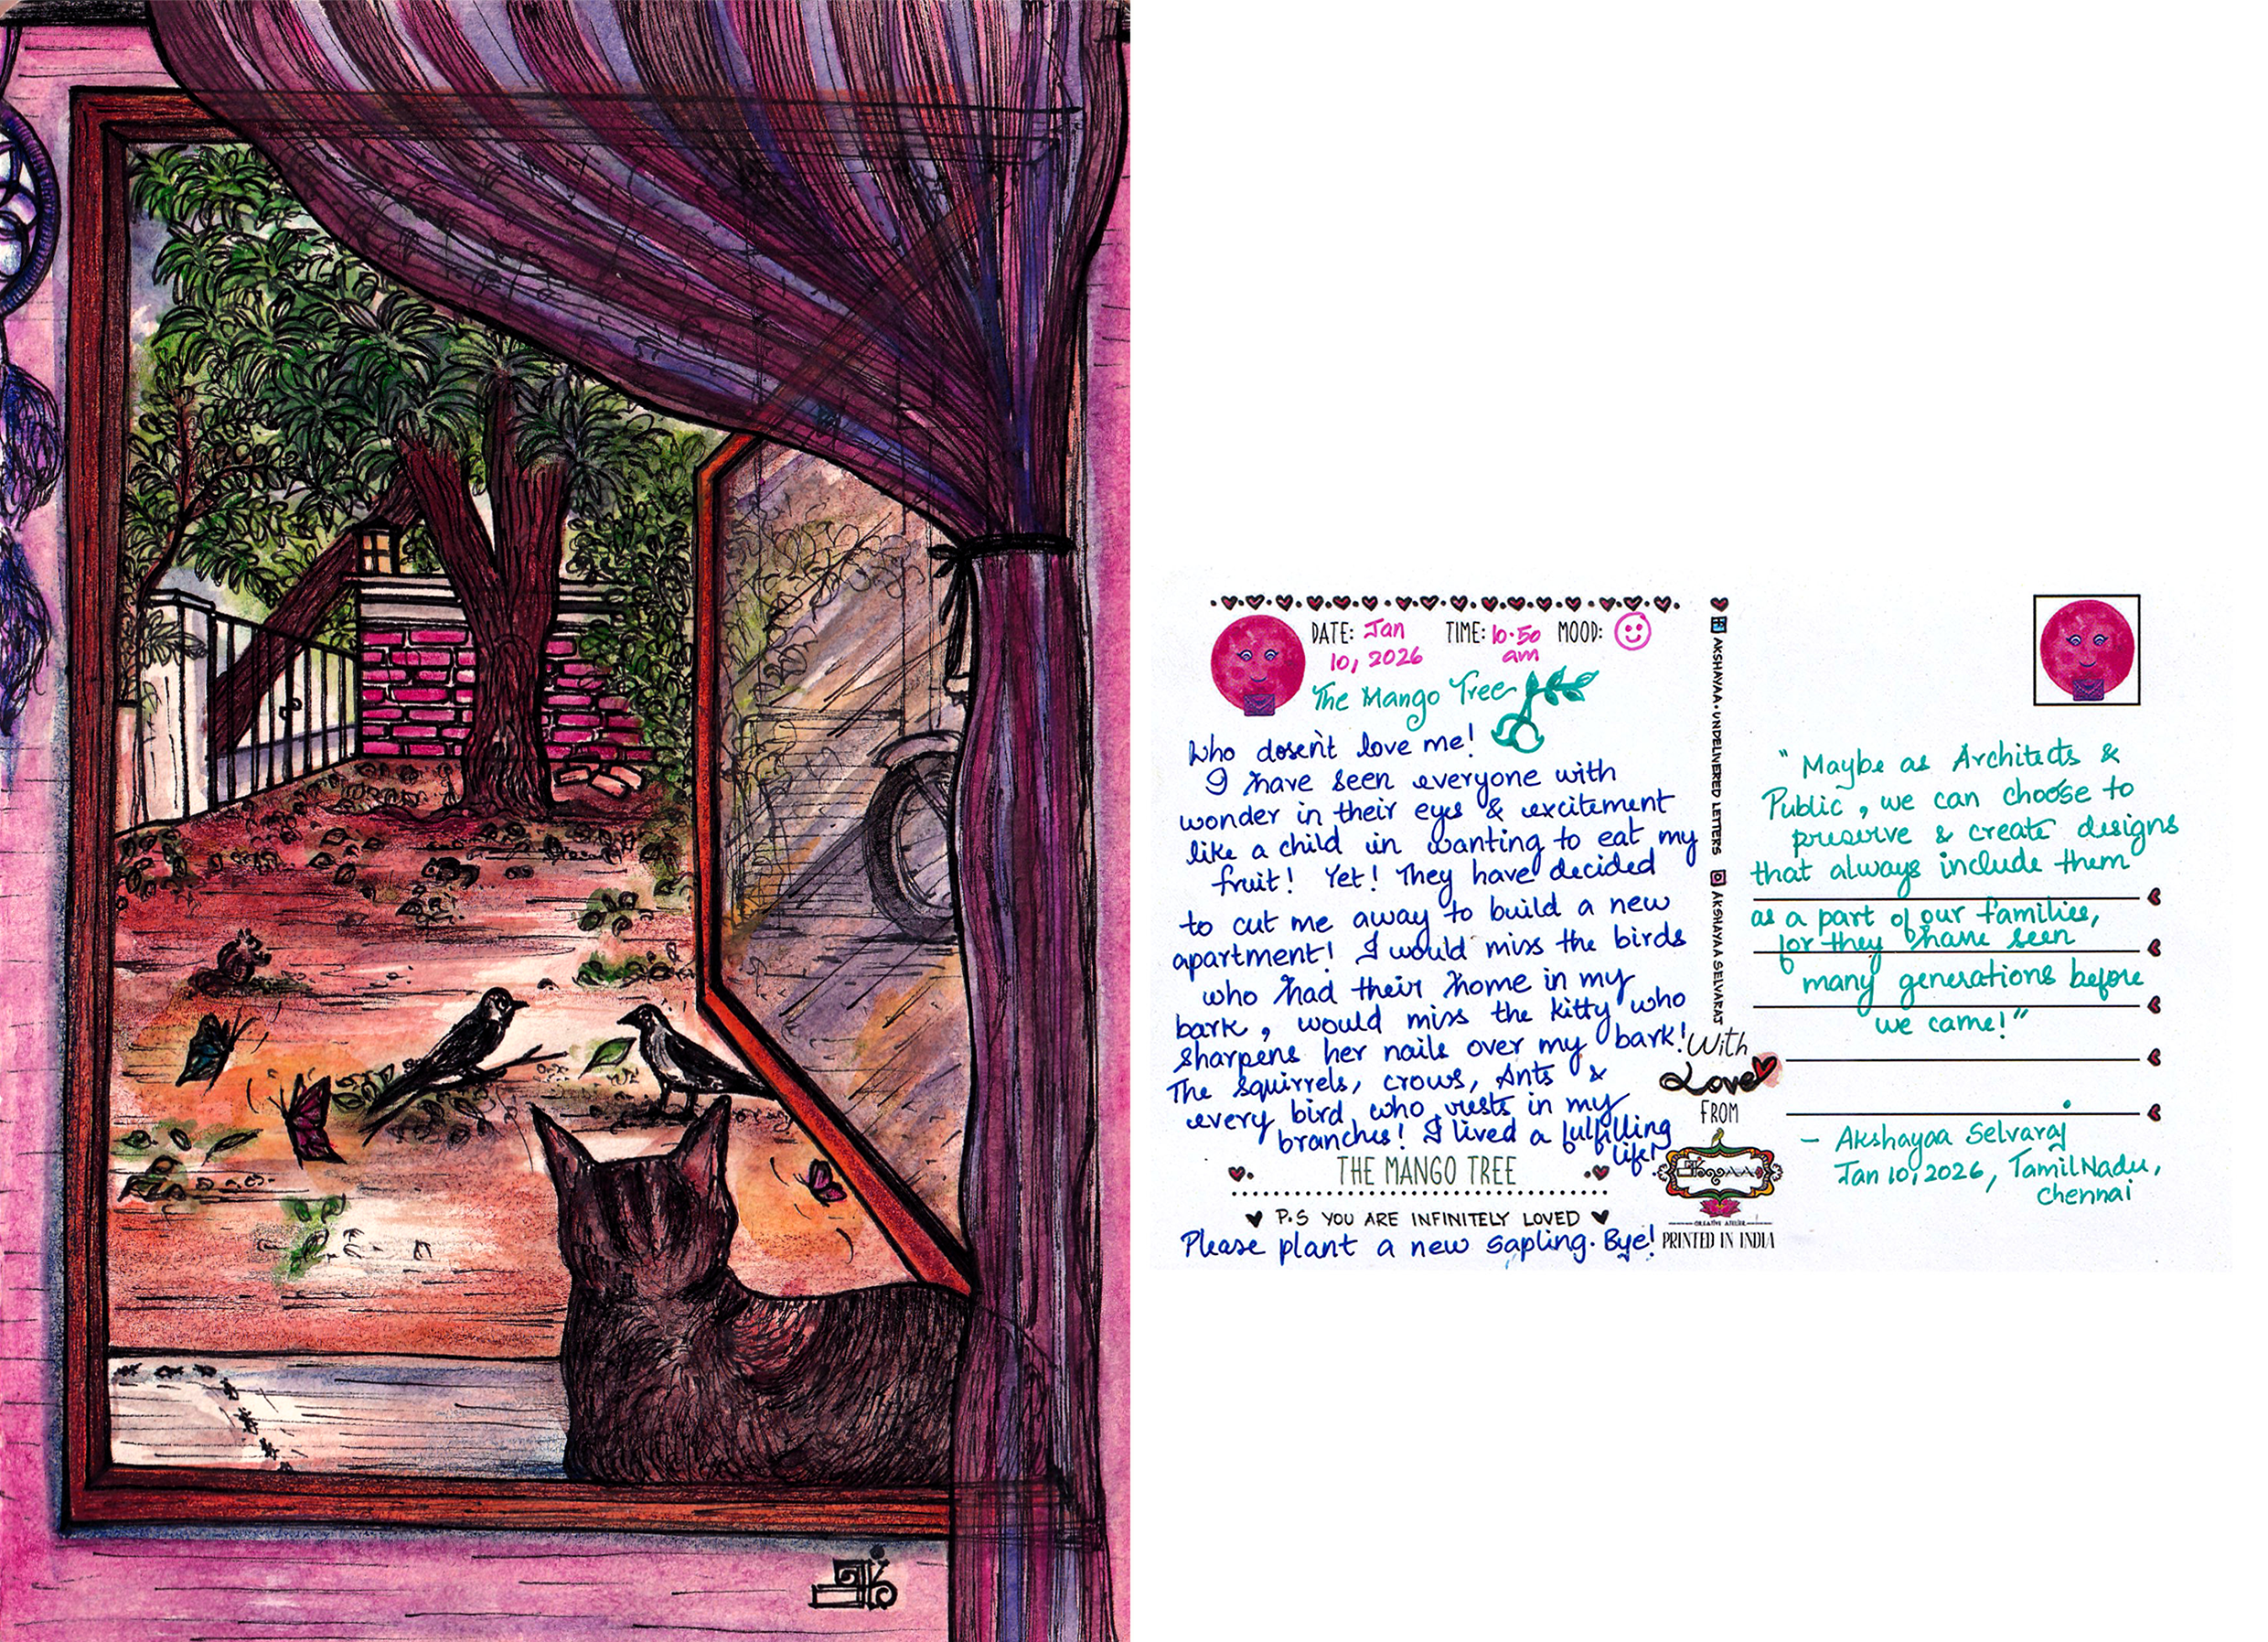 DATE: Jan 10, 2026 TIME: 10.50 am MOOD:
The Mango Tree
Who dosen't love me!
I have seen everyone with
wonder in their eyes & excitement
like a child in wanting to eat my
fruit! Yet! They have decided
to cut me away to build a new
apartment! I would miss the birds
who had their home in my
bark, would miss the kitty who
sharpens her nails over my bark!
The squirrels, crows, Ants &
every bird who rests in my
branches! I lived a fulfilling
life!
THE MANGO TREE
P.S YOU ARE INFINITELY LOVED
Please plant a new sapling. Bye!
AKSHAYAA • UNDELIVERED LETTERS
AKSHAYAA SELVARAJ
With
Love
FROM
CREATIVE ATELIER
PRINTED IN INDIA
"Maybe as Architects &
Public, we can choose to
preserve & create designs
that always include them
as a part of our families,
for they have seen
many generations before
we came!"
- Akshayaa Selvaraj
Jan 10, 2026, TamilNadu,
Chennai